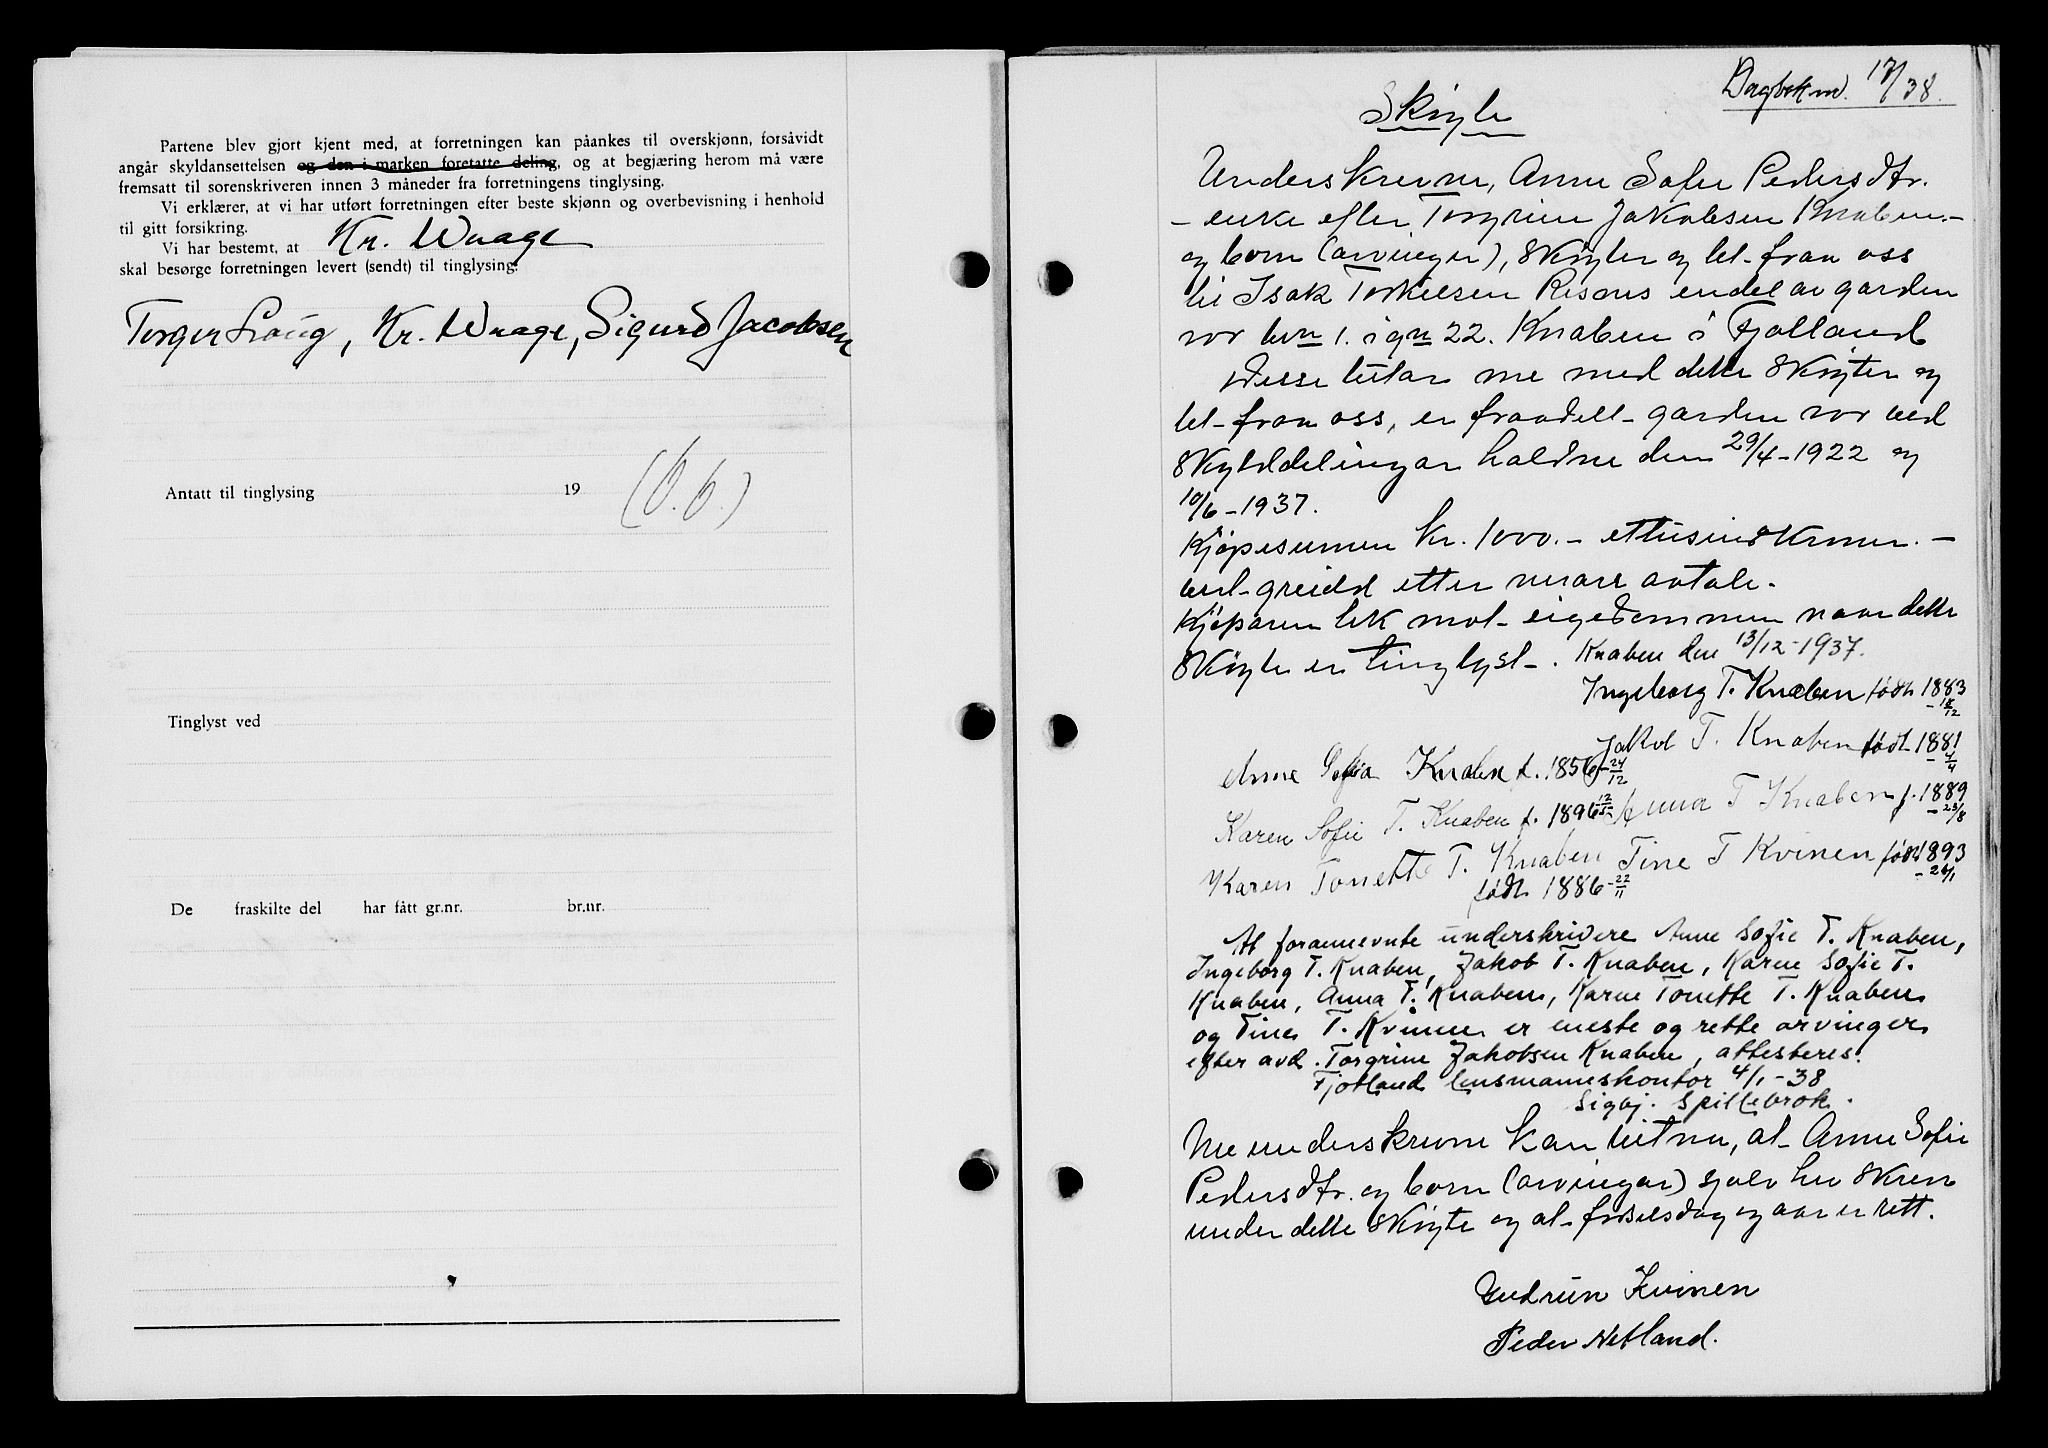 Partene blev gjort kjent med, at forretningen kan påankes til overskjønn, forsåvidt
angår skyldansettelsen og den i marken foretatte deling, og at begjæring herom må være
fremsatt til sorenskriveren innen 3 måneder fra forretningens tinglysing.
Vi erklærer, at vi har utført forretningen efter beste skjønn og overbevisning i henhold
til gitt forsikring.
Vi har bestemt, at Kr. Waage
skal besørge forretningen levert (sendt) til tinglysing.
Torger Kr. Waage, Sigurd Jacobsen
Antatt til tinglysing 19
Tinglyst ved
De fraskilte del har fått gr.nr. br.nr.
Dagbok nr. 17/38.
Skøyte
Underskrevne, Anne Sofie Pedersdtr.
- enke efter Torgrim Jakobsen Knaben -
og born (arvinger), skøyter og let fraa oss
til Isak Torkelsen Risnes endel av garden
vor bnr 1. i gnr 22. Knaben i Fjotland
Desse lutar me med dette skøyter og
let fraa oss, er fraadelt garden vor ved
skylddelingar haldne den 29/4-1922 og
10/6-1937.
Kjøpesumen kr. 1000.- ettusindkroner. -
vert greidd etter nerare avtale.
Kjøparen tek mot eigedommen naar dette
skøyte er tinglyst. Knaben den 13/12-1937.
Ingeborg T. Knaben født 1883
- 18/12
Jakob T. Knaben født 1881
- 4/4
Anne Sofia Knaben f. 1856-24/12
Karen Sofie T. Knaben f. 1896-12/5 Anna T Knaben f. 1889
- 23/8
Karen Tonette T. Knaben Tine T Kvinen født 1893
født 1886-22/11 - 24/1
At forannevnte underskrivere Anne Sofie T. Knaben,
Ingeborg T. Knaben, Jakob T. Knaben, Karen Sofie T.
Knaben, Anna T. Knaben, Karen Tonette T. Knaben
og Tine T. Kvinen er eneste og rette arvinger
efter avd. Torgrim Jakobsen Knaben, attesteres.
Fjotland lensmannskontor 4/1-38
Sigbj. Spillebrok.
Me underskrevne kan vitna, at Anne Sofie
Pedersdtr. og born (arvingar) sjølv hev skreve
under dette skøyte og at fødselsdag og aar er rett.
Gudrun Kvinen
Peder Netland.